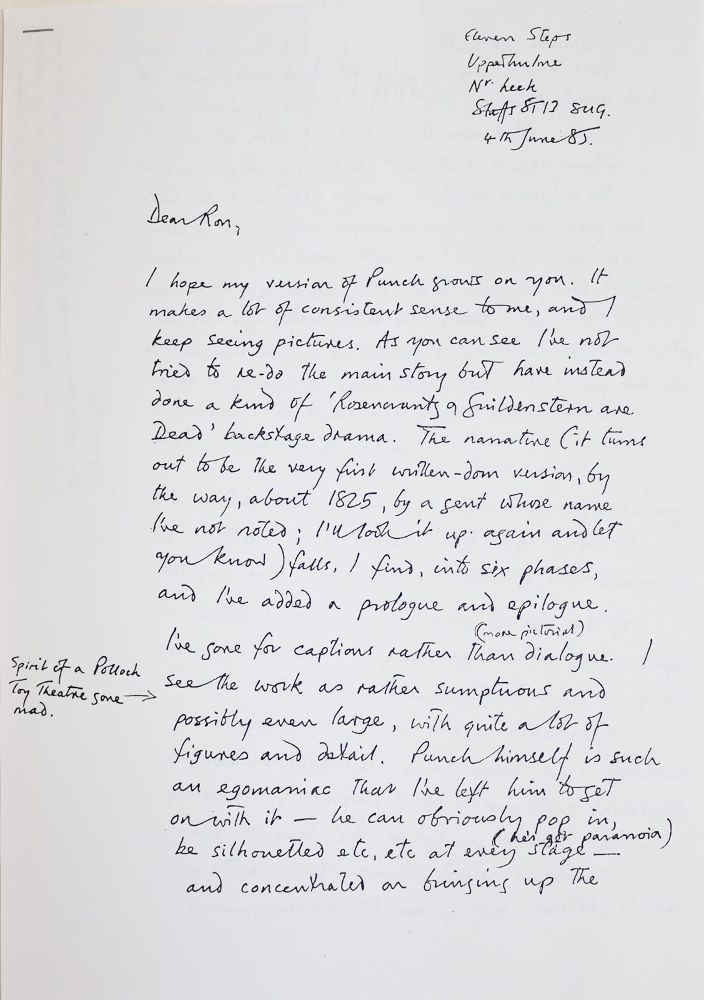 Eleven Steps
Upperhulme
Nr. Leek
Staffs ST13 8UG.
4th June 85.
Dear Ron,
I hope my version of Punch grows on you. It
makes a lot of consistent sense to me, and I
keep seeing pictures. As you can see I've not
tried to re-do the main story but have instead
done a kind of 'Rosencrantz & Guildenstern are
Dead' backstage drama. The narrative (it turns
out to be the very first written-down version, by
the way, about 1825, by a gent whose name
I've not noted; I'll look it up again and let
you know) falls, I find, into six phases,
and I've added a prologue and epilogue.
(more pictorial)
I've gone for captions rather than dialogue. I
Spirit of a Pollock
Toy Theatre gone →
mad.
see the work as rather sumptuous and
possibly even large, with quite a lot of
figures and detail. Punch himself is such
an egomaniac that I've left him to get
on with it – he can obviously pop in,
(he's got paranoia)
be silhouetted etc, etc at every stage –
and concentrated on bringing up the